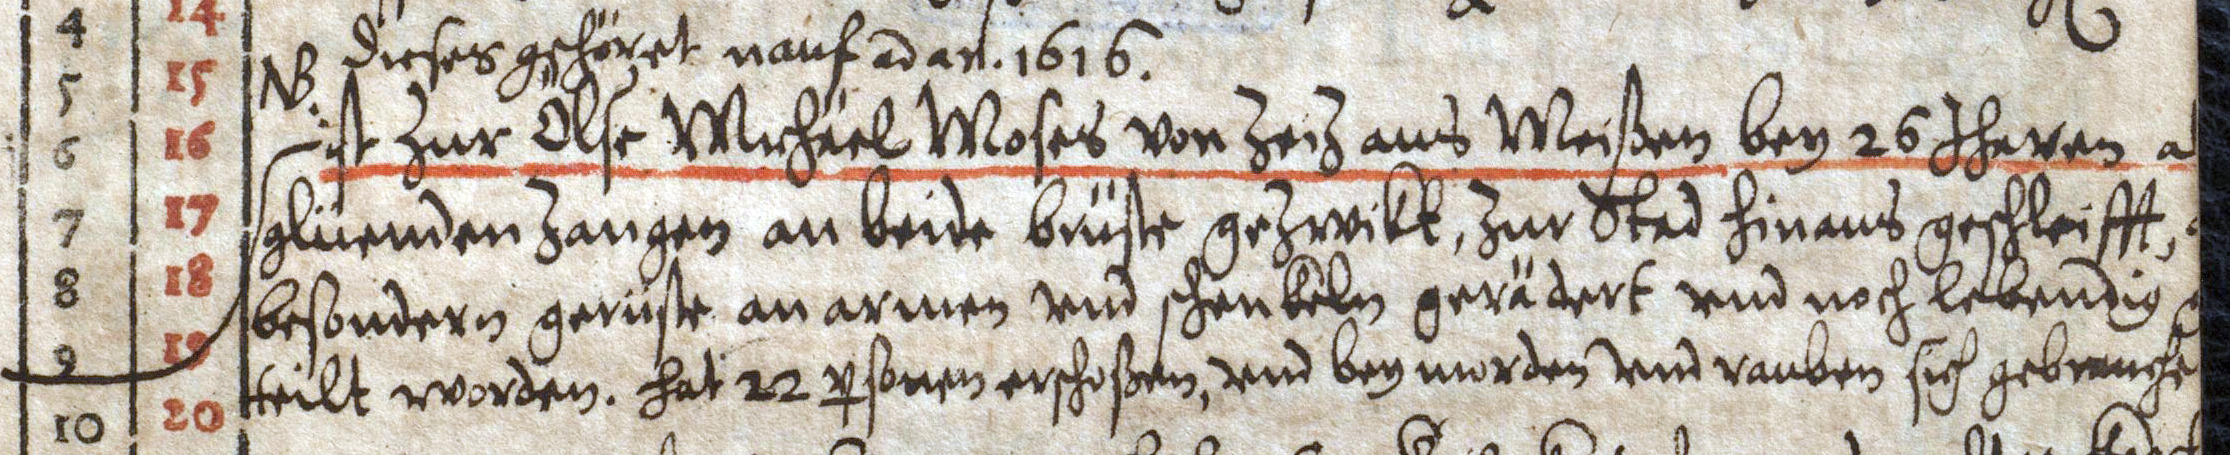 4 14
NB. dieses gehöret nauf ad an. 1616.
5 15
6 16 ist zur Ölse Michäel Moses von Zeiz aus Meißen bey 26 Jharen a
7 17 glüenden Zangen an beide brüste gezwikt, zur Stad hinaus geschleifft,
8 18 besondern gerüste an armen vnd schenkeln gerädert vnd noch lebendig
9 19 teilt worden. hat 22 psonen erschoßen, vnd bey morden vnd rauben sich gebrauche
10 20